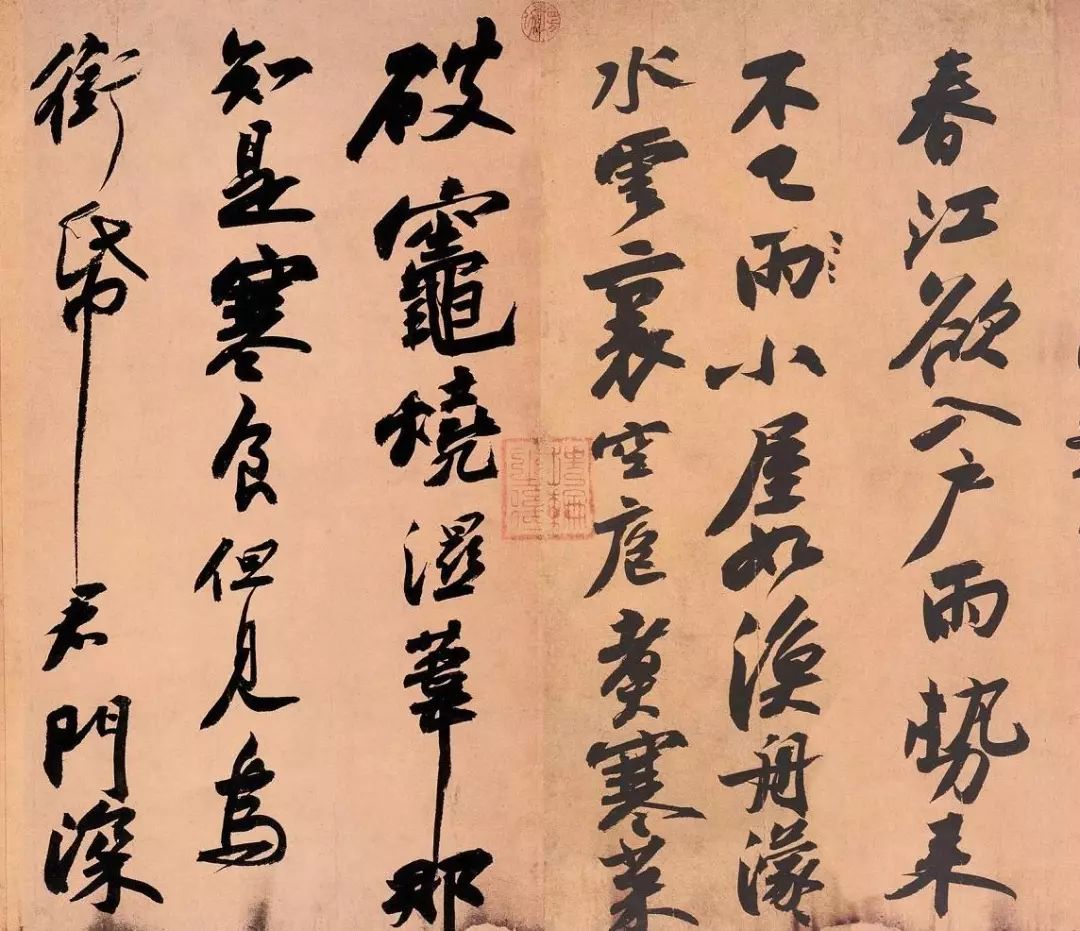 春江欲入户雨勢来
不已雨小屋如漁舟濛
水雲裏空庖煑寒菜
破竈燒濕葦那
知是寒食但見烏
銜帋君門深